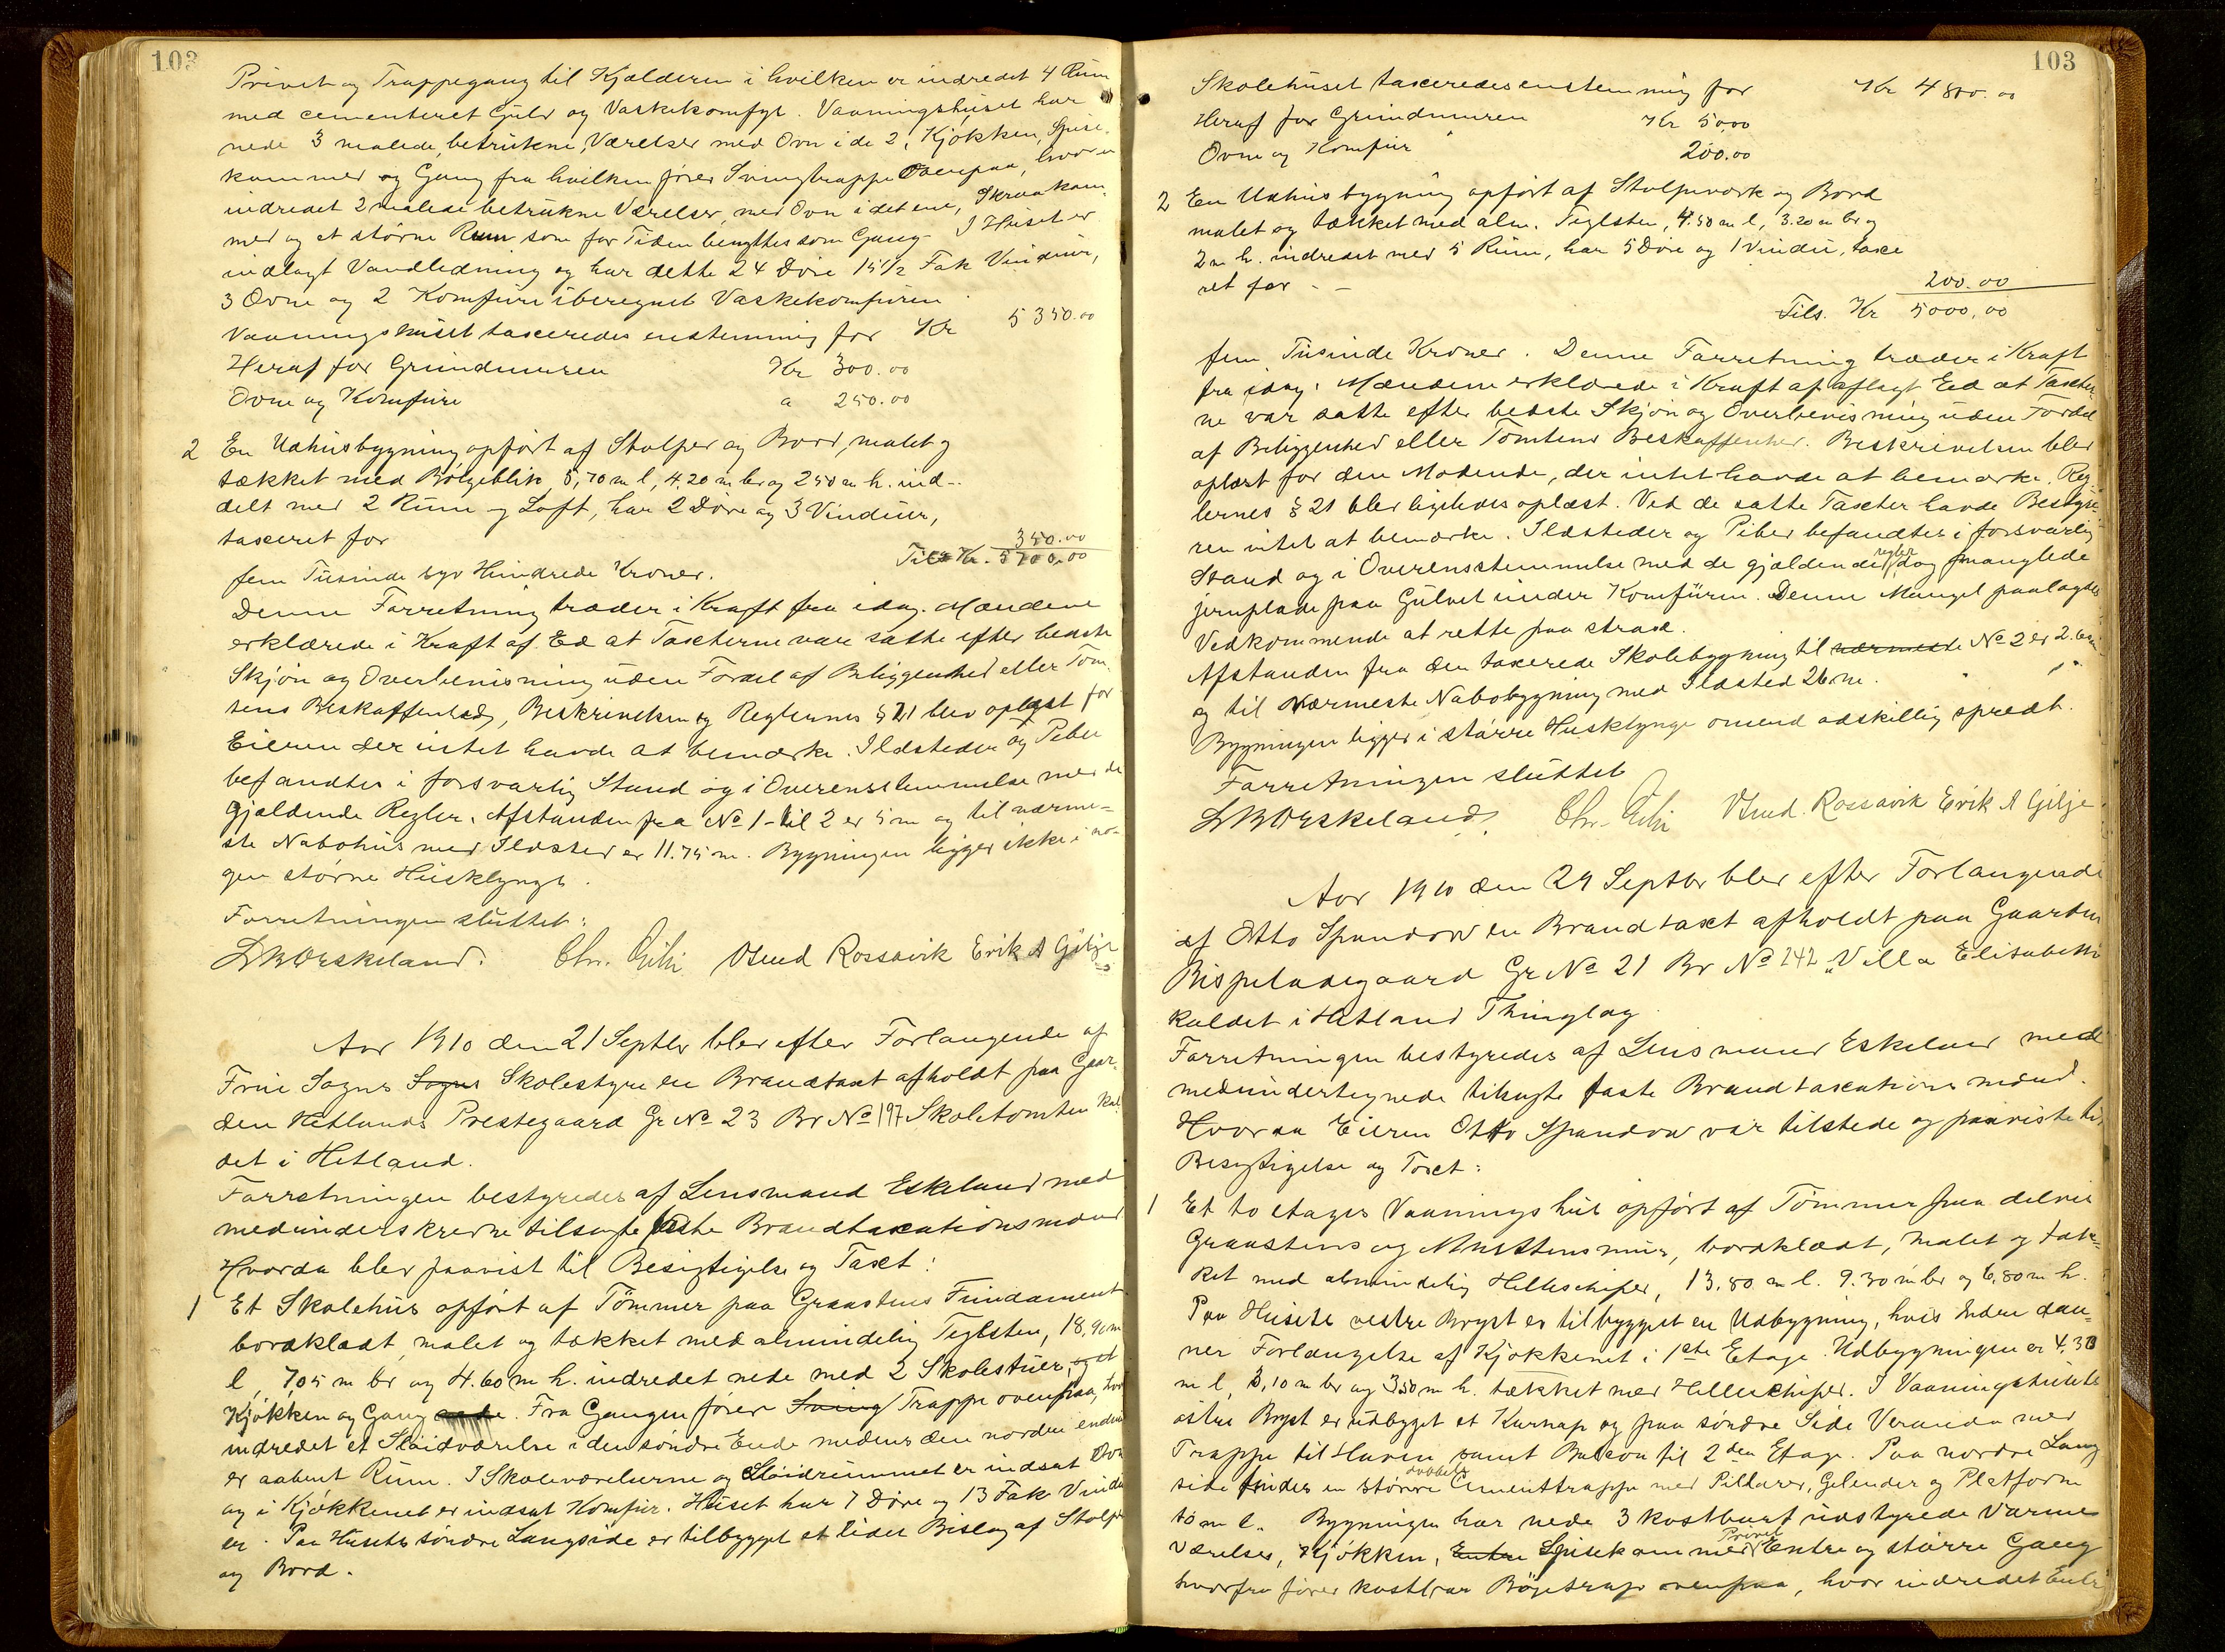 103
Privet og Trappegang til Kjælderen i hvilken er indredet 4 Rum
med cementeret Gulv og Vaskekomfyr. Vaaningshuset har
nede 3 malede, betrukne Værelser med Ovn i de 2, Kjøkken, Spise-
kammer og Gang fra hvilken fører Svingtrappe Ovenpaa, hvor er
indredet 2 malede betrukne Værelser, med Ovn i det ene, Skraakam-
mer og et større Rum som for Tiden benyttes som Gang. I Huset er
indlagt Vandledning og har dette 24 Døre 15 1/2 Fak Vinduer,
3 Ovne og 2 Komfure iberegnet Vaskekomfuren.
Vaaningshuset taxeredes enstemmig for Kr 5350.00
Heraf for Grundmuren Kr 300.00
Ovne og Komfure a 250.00
2 En Udhusbygning opført af Stolper og Bord, malet og
tækket med Bølgeblik, 5,70 m l, 4,20 m br og 2 50 m h. ind-
delt med 2 Rum og Loft, har 2 Døre og 3 Vinduer,
taxeret for 350.00
Tils Kr. 5700.00
fem Tusinde syv Hundrede Kroner.
Denne Forretning træder i Kraft fra idag. Mændene
erklærede i Kraft af Ed at Taxterne var satte efter bedste
Skjøn og Overbevisning uden Fordel af Beliggenhed eller Tom-
tens Beskaffenhed, Beskrivelsen og Reglernes § 21 blev oplæst for
Eieren der intet havde at bemærke. Ildsteder og Piber
befandtes i forsvarlig Stand og i Overensstemmelse med de
gjældende Regler. Afstanden fra No 1 til 2 er 5 m og til nærme-
ste Nabohus med Ildsted er 11.75 m. Bygningen ligger ikke i no-
gen større Husklynge.
Forretningen sluttet:
L B Oeskeland. Chr. Gilje Knud Rossavik Erik A Gilje
Aar 1910 den 21 Septbr blev efter Forlangende af
Frue Sogns Sogns Skolestyre en Brandtaxt afholdt paa Gaar-
den Hetlands Prestegaard Gr No 23 Br No 197 Skoletomten kal-
det i Hetland.
Forretningen bestyredes af Lensmand Eskeland med
medunderskrevne tilsagte faste Brandtaxationsmænd
Hvorda blev paavist til Besigtigelse og Taxt:
1 Et Skolehus opført af Tømmer paa Graastens Fundament
bordklædt, malet og tækket med almindelig Teglsten, 18,90 m
l, 7,05 m br og 4.60 m h. indredet nede med 2 Skolestuer, og et
Kjøkken og Gang nede. Fra Gangen fører Sving Trappe ovenpaa, hvor
indredet et Sløidværelse i den søndre Ende medens den nordre ende
er aabent Rum. I Skoleværelserne og Sløidrummet er indsat Ovn
og i Kjøkkenet er indsat Komfur. Huset har 7 Døre og 13 Fak Vindu-
er. Paa Husets søndre Langside er tilbygget et lidet Bislag af Stolper
og Bord.
103
Skolehuset taxeredes enstemmig for Kr 4800.00
Heraf for Grundmuren Kr 50,00
Ovne og Komfur 200.00
2 En Udhusbygning opført af Stolpeværk og Bord
malet og tækket med alm. Teglsten, 4.50 m l, 3.20 m br og
2 m h. indredet med 5 Rum, har 5 Døre og 1 Vindu, taxe
ret for - - 200.00
Tils. Kr 5000,00
fem Tusinde Kroner. Denne Forretning træder i Kraft
fra idag. Mændene erklærede i Kraft af aflagt Ed at Taxter-
ne var satte efter bedste Skjøn og Overbevisning uden Fordel
af Beliggenhed eller Tomtens Beskaffenhed. Beskrivelsen blev
oplæst for den Mødende, der intet havde at bemærke. Reg-
lernes § 21 blev ligeledes oplæst. Ved de satte Taxter havde Bestyre-
ren intet at bemærke. Ildsteder og Piber befandtes i forsvarlig
Stand og i Overensstemmelse med de gjældende regler dog manglede
jernplade paa Gulvet under Komfuren. Denne Mangel paalagdes
Vedkommende at rette paa strax.
Afstanden fra den taxerede Skolebygning til nærmeste No 2 er 2.60 m
og til Nærmeste Nabobygning med Ildsted 26 m.
Bygningen ligger i større Husklynge omend adskillig spredt.
Forretningen sluttet
L B Oeskeland. Chr. Gilje Knud Rossavik Erik A Gilje
Aar 1910 den 29 Septbr blev efter Forlangende
af Otto Spandow en Brandtaxt afholdt paa Gaarden
Bispeladegaard Gr No 21 Br No 242 „Villa Elisabeth
kaldet i Hetland Thinglag.
Forretningen bestyredes af Lensmand Eskeland med
medundertegnede tilsagte faste Brandtaxationsmænd.
Hvorda Eieren Otto Spandow var tilstede og paaviste til
Besigtigelse og Taxt:
1 Et to etages Vaaningshus opført af Tømmer paa delvis
Graastens og Murstensmur, bordklædt, malet og tæk-
ket med almindelig Helleskifer, 13.80 m l. 9.30 m br og 6,80 m h.
Paa Husets vestre Bryst er tilbygget en Udbygning, hvis Enden dan-
ner Forlængelse af Kjøkkenet i 1ste Etage. Udbygningen er 4,30
m l, 3,10 m br og 3 50 m h. tækket med Helleskifer. I Vaaningshusets
østre Bryst er udbygget et Karnap og paa søndre Side Veranda med
Trappe til Haven samt Balcon til 2den Etage. Paa nordre Lang
side findes en større dobbelt Cementtrappe med Pillarer, Gelender og Platform
10 m l. Bygningen har nede 3 kostbart udstyrede Varme
værelser, Kjøkken, Entre Spisekammer Privet Entre og større Gang
hvorfra fører kostbar Bøgetrap ovenpaa, hvor indredet Entre